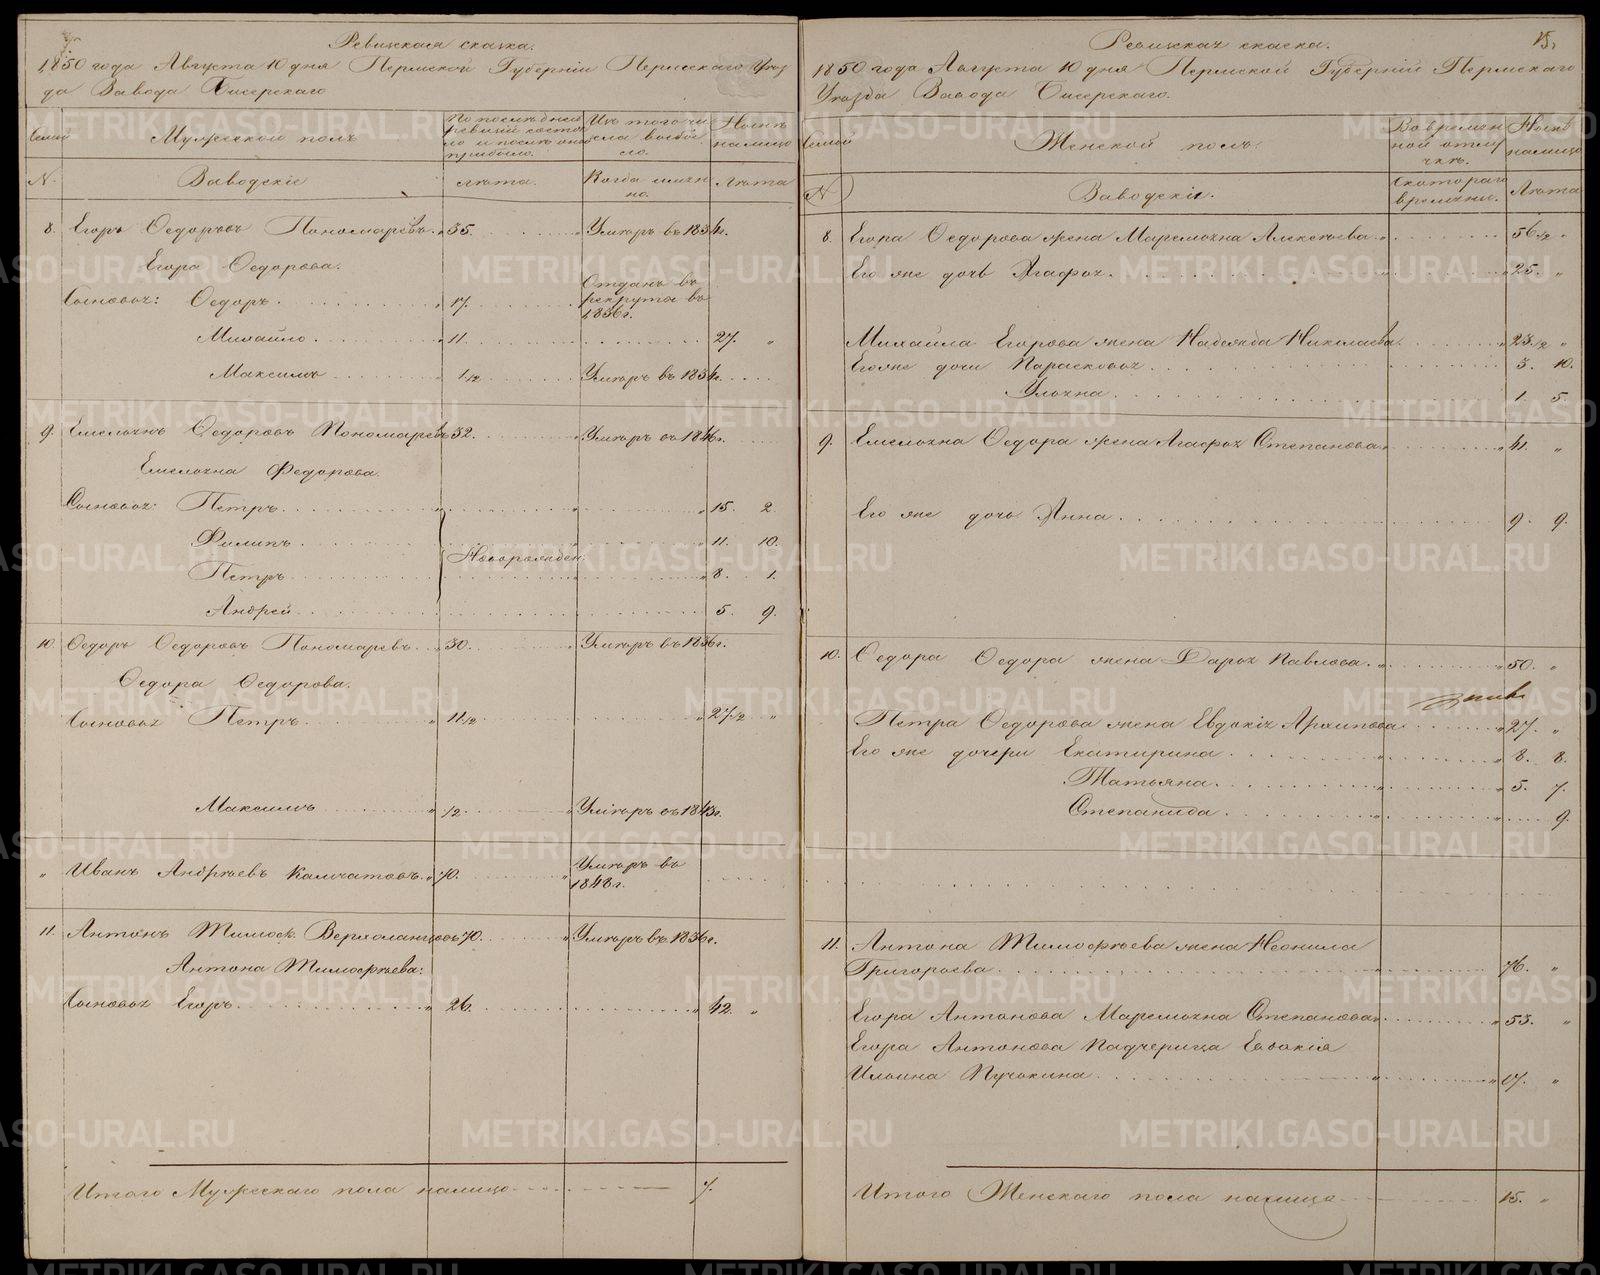 Ревизская сказка.
1850 года Августа 10 дня Пермской Губернiи Пермскаго Уѣз
да Завода Бисерскаго
Семьи
Мужеской полъ
По послѣдней
ревизiи состоя
ло и послѣ оной
прибыло.
Изъ того чи
сла выбы
ло.
Нынѣ
налицо
N.
Заводскiе
лѣта.
Когда имен
но.
Лѣта
8. Егоръ Ѳедоровъ Пономаревъ 35. Умеръ въ 1834г.
Егора Ѳедорова.
Сыновья: Ѳедоръ 17. Отданъ въ
рекруты въ
1836г.
Михайло 11. 27. "
Максимъ 1/2 Умеръ въ 1834г.
9. Емельянъ Ѳедоровъ Пономаревъ 32. Умеръ въ 1846г.
Емельяна Федорова
Сыновья: Петръ 15. 2.
Филипъ 11. 10.
Новорожден.
Петръ 8. 1.
Андрей 5. 9.
10. Ѳедоръ Ѳедоровъ Пономаревъ 30. Умеръ въ 1836г.
Ѳедора Ѳедорова.
Сыновья Петръ 11 1/2 27 1/2 "
Максимъ 1/2 Умеръ въ 1843г.
" Иванъ Андреевъ Камчатовъ 70. Умеръ въ
1848г.
11. Антонъ Тимоѳ. Верхоланцовъ 70. Умеръ въ 1836г.
Антона Тимофѣева:
Сыновья Егоръ 26. 42. "
Итого Мужескаго пола налицо 7.
15.
Ревизская сказка.
1850 года Августа 10 дня Пермской Губернiи Пермскаго
Уѣзда Завода Бисерскаго.
Семьи
Женской полъ.
Во времен
ной отлу
чкѣ.
Нынѣ
налицо
N
Заводскiе.
Скотораго
времени.
Лѣта
8. Егора Ѳедорова жена Маремьяна Алексѣева 56 1/2 "
Его же дочь Агафья 25. "
Михайла Егорова жена Надежда Николаева 23 1/2 "
Его же дочи Парасковья 3. 10.
Ульяна 1. 5.
9. Емельяна Ѳедора жена Агафья Степанова 41. "
Его же дочь Анна 9. 9.
10. Ѳедора Ѳедора жена Дарья Павлова 50. "
Петра Ѳедорова жена Евдокiя Архипова 27. "
Его же дочери Екатирина 8. 8.
Татьяна 5. 7.
Степанида 9.
11. Антона Тимофѣева жена Неонила
Григорьева 76. "
Егора Антонова Маремьяна Степанова 53. "
Егора Антонова Падчерица Евдокiя
Ильина Пучкина 17. "
Итого Женскаго пола налицо 15. "
METRIKI.GASO-URAL.RU